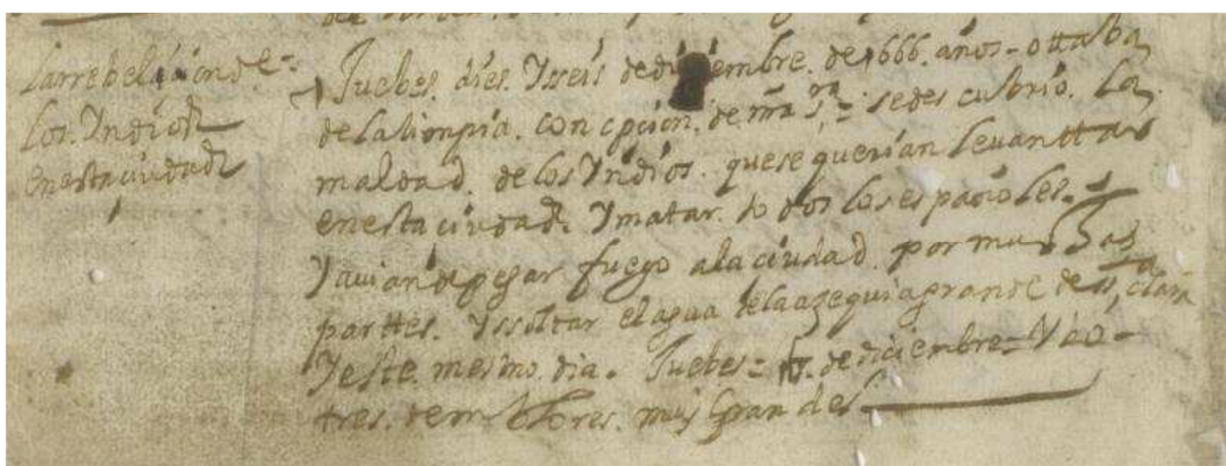 Larrebelión de
los Yndios
enesta ciudad
Juebes. dies. Ysseis dediziembre. de 1666. años - ottaba
delalimpia. concpcion. de nra sra = sedes cubrio. La
maldad. delos Yndios. quese querian Levanttar
enesta ciudad. Y matar. to dos los españoles.
Y avian de pegar fuego alaciudad. por muchas
parttes. Yssoltar elagua delaazequiagrande de sta clara
Yeste. mesmo. dia. Juebes = 16. de diciembre = Vbo -
tres. temblores. muy Grandes